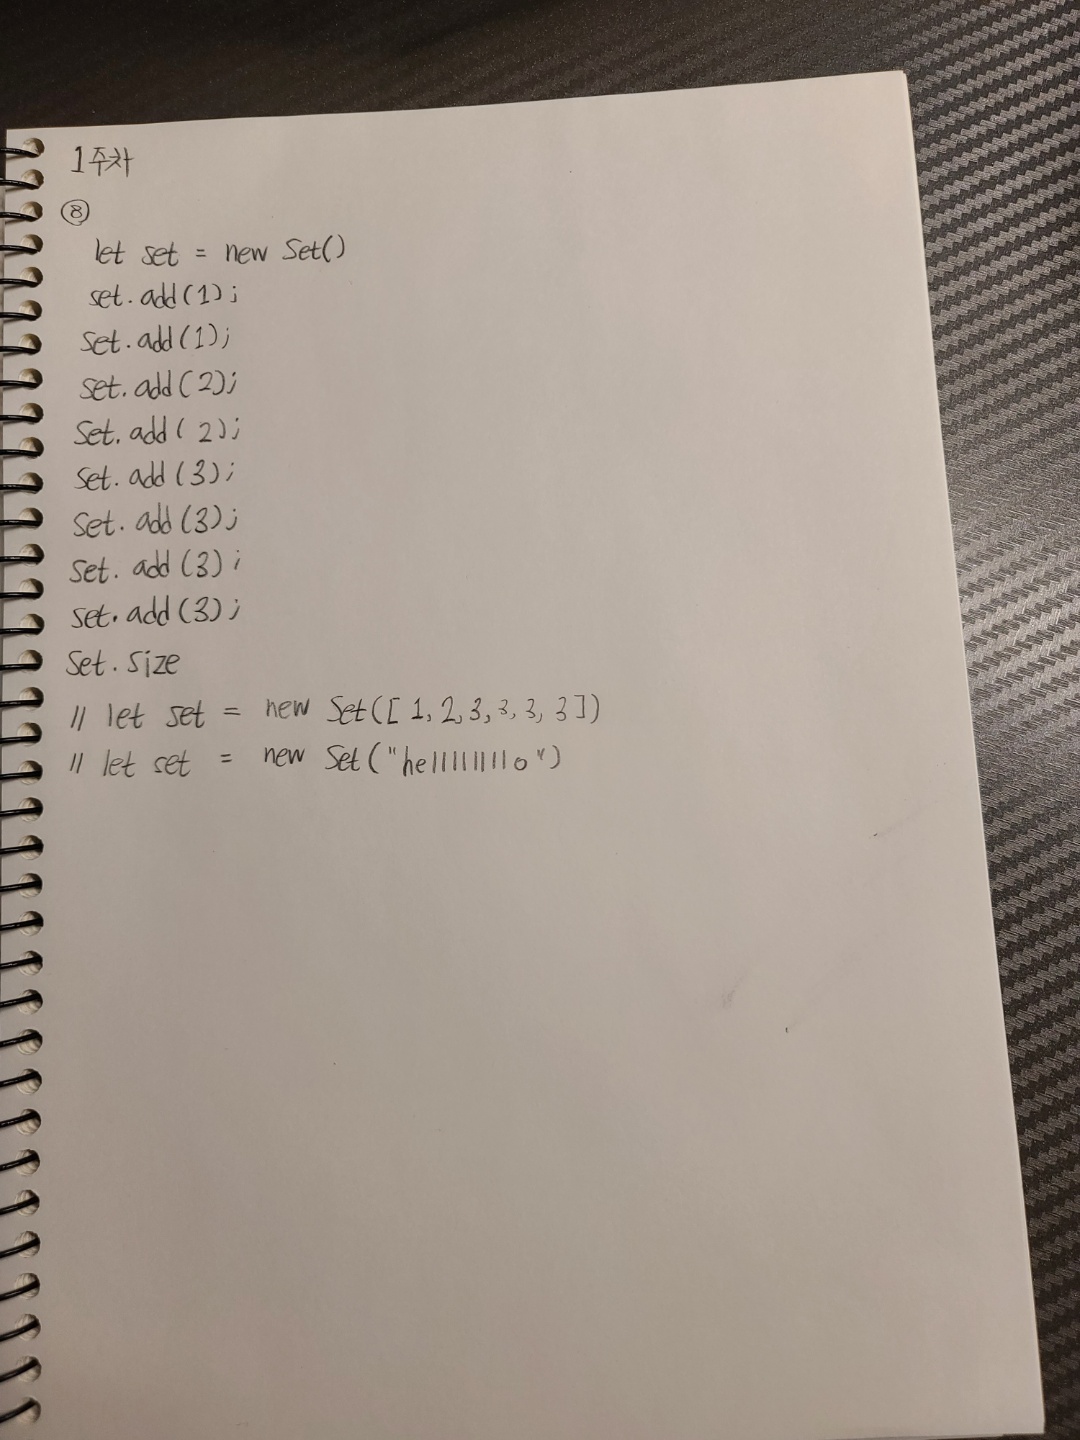 1주차
⑧
let set = new Set()
set.add(1);
set.add(1);
set.add(2);
set.add(2);
set.add(3);
set.add(3);
set.add(3);
set.add(3);
set.size
// let set = new Set([1,2,3,3,3,3])
// let set = new Set("hellllllllo")